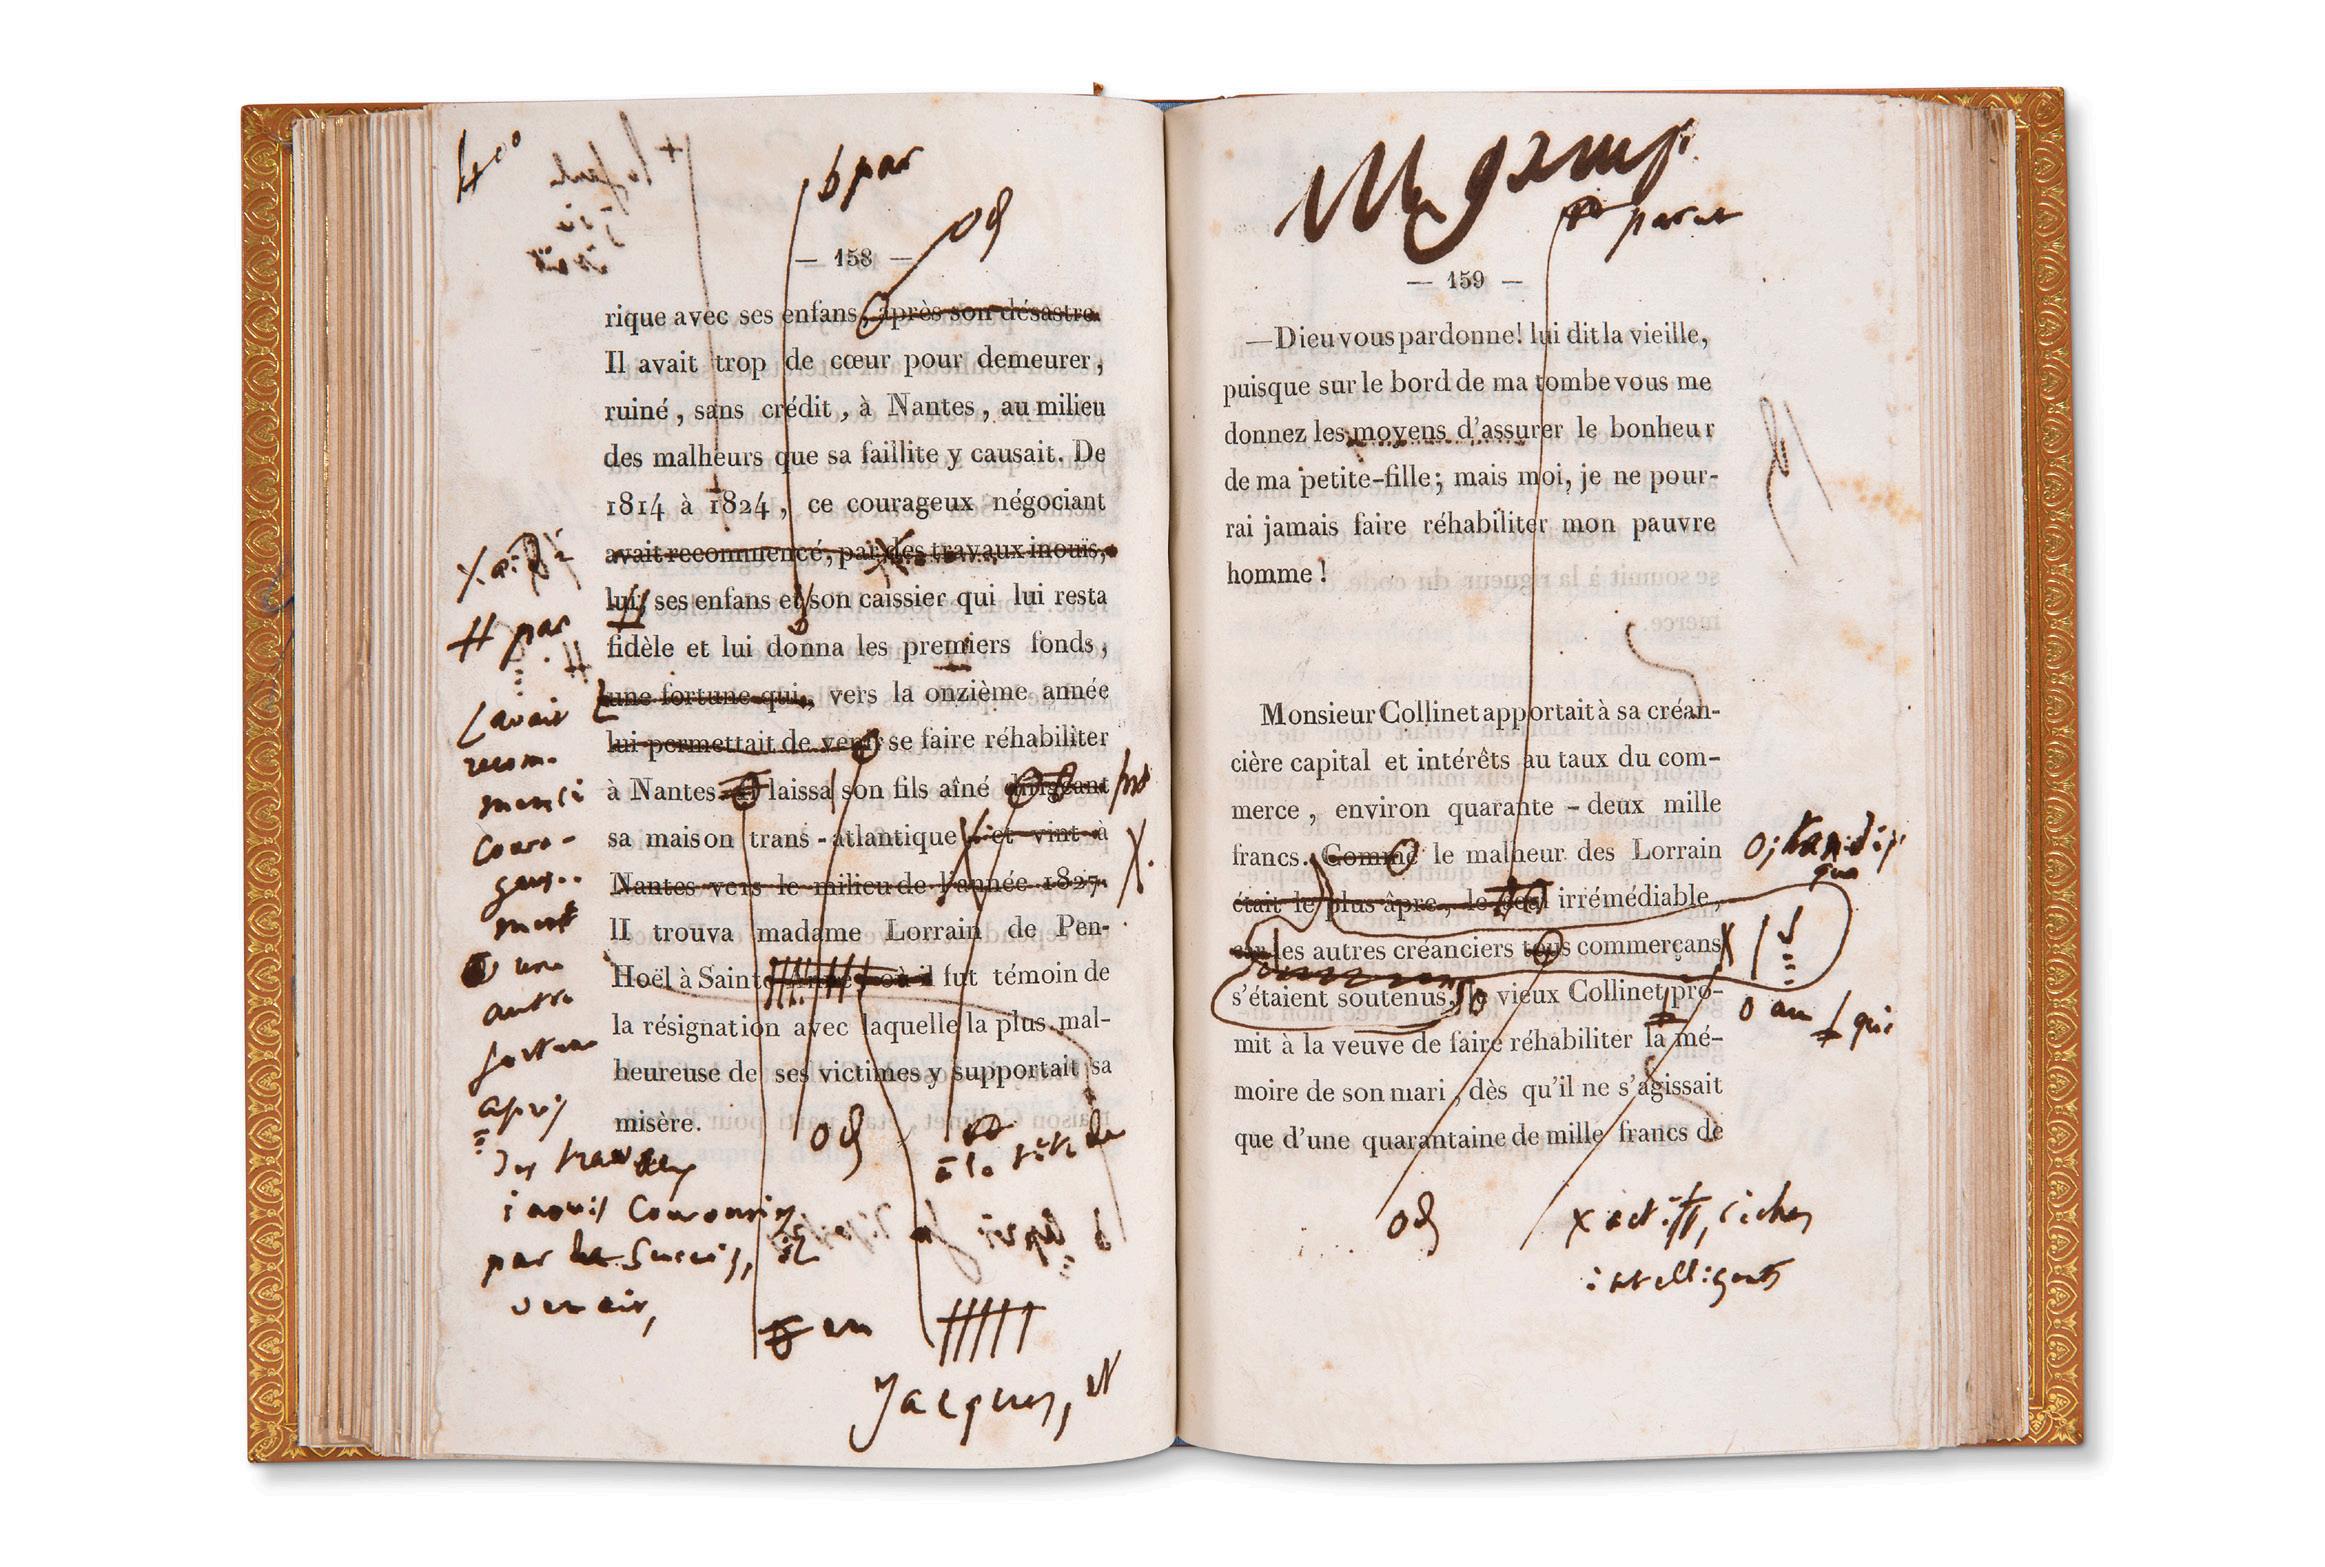 400
b par
— 158 —
rique avec ses enfans, après son désastre.
Il avait trop de cœur pour demeurer,
ruiné, sans crédit, à Nantes, au milieu
des malheurs que sa faillite y causait. De
1814 à 1824, ce courageux négociant
avait recommencé, par des travaux inouïs,
lui, ses enfans et son caissier qui lui resta
fidèle et lui donna les premiers fonds,
une fortune qui, vers la onzième année
lui permettait de venir se faire réhabiliter
à Nantes. Il laissa son fils aîné dirigeant
sa maison trans-atlantique, et vint à
Nantes vers le milieu de l'année 1827.
Il trouva madame Lorrain de Pen-
Hoël à Sainte où il fut témoin de
la résignation avec laquelle la plus mal-
heureuse de ses victimes y supportait sa
misère.
# par
avait
recom-
mencé
coura-
geuse-
ment
une
autre
fortune
après
des travaux
inouis couronnés
par le succès, il
venait,
à la tête de
en
Jacques, et
parut
— 159 —
— Dieu vous pardonne! lui dit la vieille,
puisque sur le bord de ma tombe vous me
donnez les moyens d'assurer le bonheur
de ma petite-fille; mais moi, je ne pour-
rai jamais faire réhabiliter mon pauvre
homme!
Monsieur Collinet apportait à sa créan-
cière capital et intérêts au taux du com-
merce, environ quarante-deux mille
francs. Comme le malheur des Lorrain
était le plus âpre, le seul irrémédiable,
car les autres créanciers tous commerçans
s'étaient soutenus, le vieux Collinet pro-
mit à la veuve de faire réhabiliter la mé-
moire de son mari, dès qu'il ne s'agissait
que d'une quarantaine de mille francs de
qui
x actifs, riches
intelligents